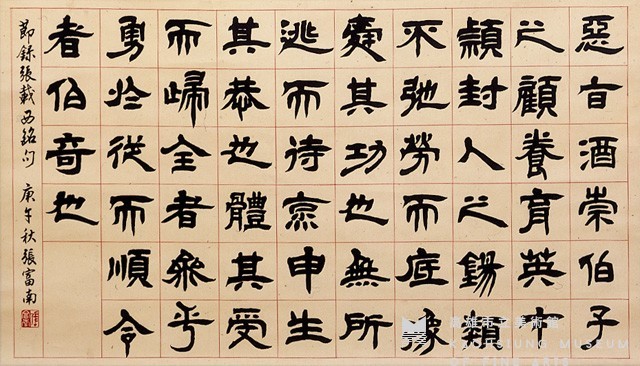 惡旨酒崇伯子
之顧養育英才
穎封人之錫類
不弛勞而底豫
舜其功也無所
逃而待烹申生
其恭也體其受
而歸全者參乎
勇於從而順令
者伯奇也
節錄張載西銘句 庚午秋張富南
高雄市立美術館
KAOHSIUNG MUSEUM
OF FINE ARTS